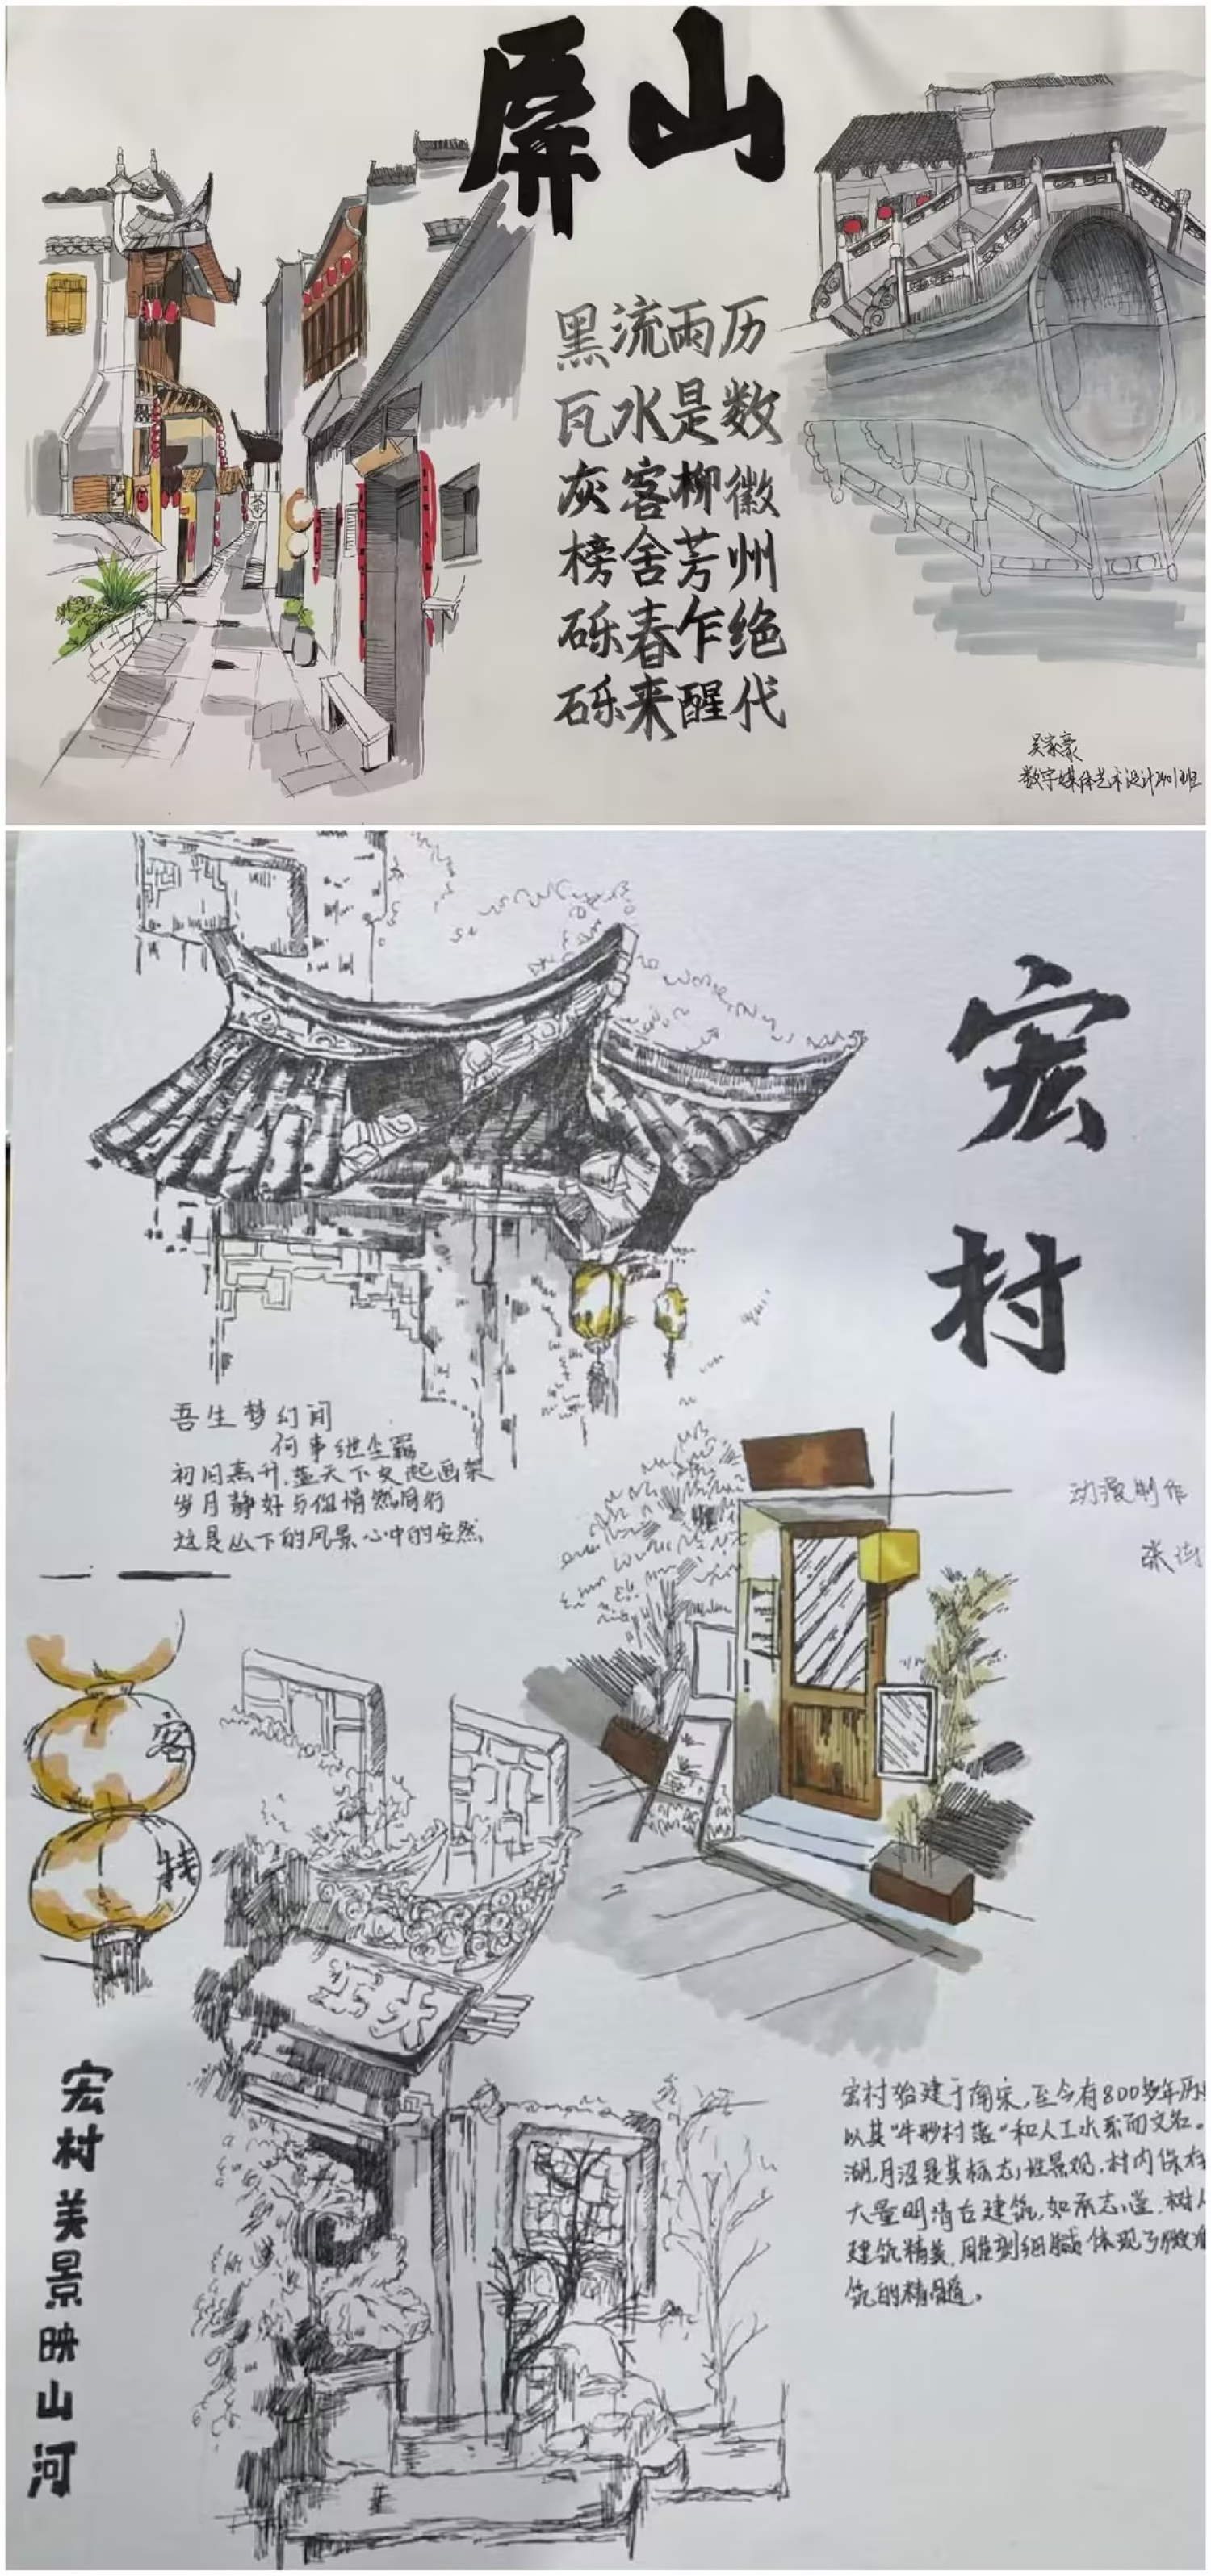 屏山
历数徽州绝代
雨是柳芳乍醒
流水客舍春来
黑瓦灰榜砾砾
茶
吴家豪
数字媒体艺术设计2401班
宏村
吾生梦幻间
何事绁尘羁
初日熹升,蓝天下支起画架
岁月静好与你悄然同行
这是丛下的风景心中的安然
动漫制作
张
客栈
宏村美景映山河
宏村始建于南宋,至今有800多年历
以其"牛形村落"和人工水系而文名。
湖,月沼是其标志性景观,村内保存
大量明清古建筑,如承志堂,树人
建筑精美,雕刻细腻体现了徽
筑的精髓。